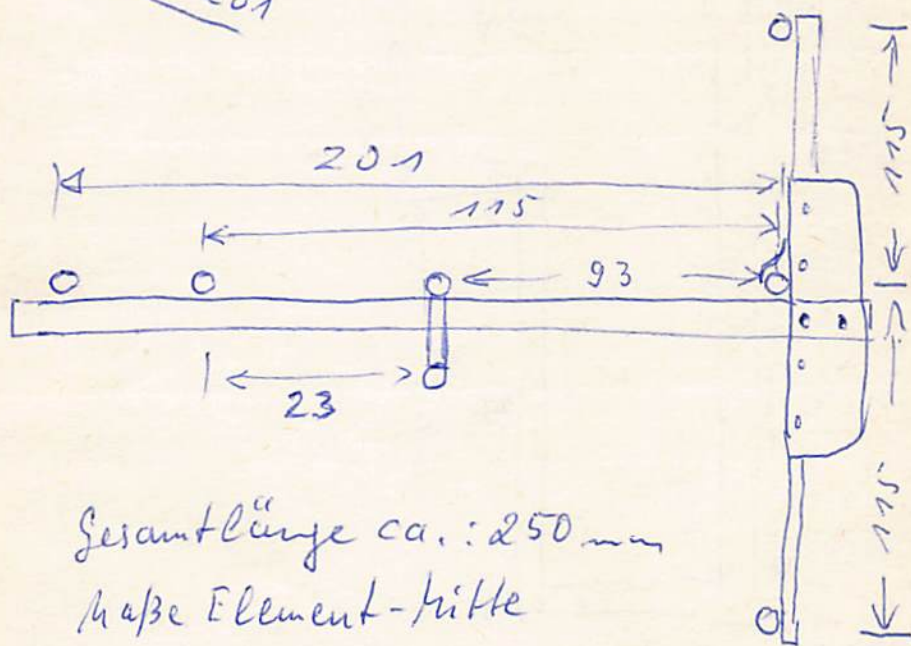 201
201
115
115
93
23
115
Gesamtlänge ca.: 250 mm
Maße Element-Mitte